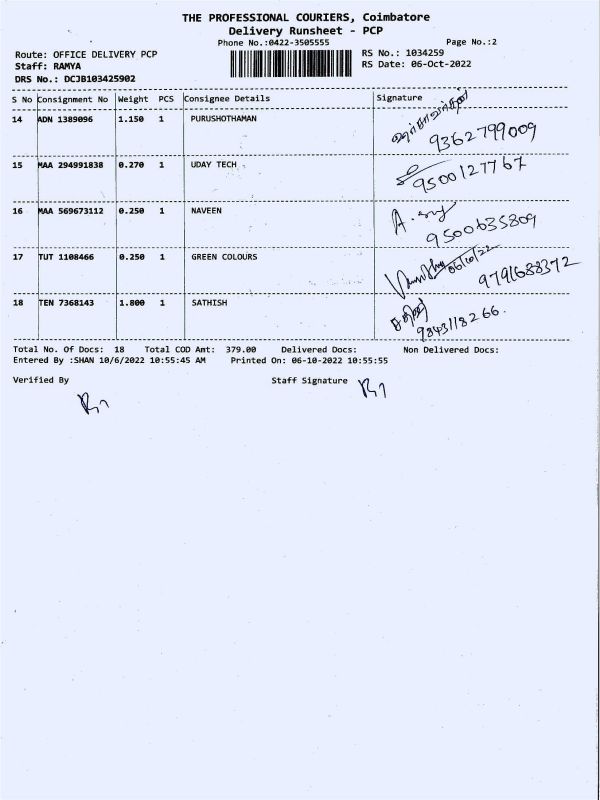 THE PROFESSIONAL COURIERS, Coimbatore
Delivery Runsheet - PCP
Phone No.:0422-3505555 Page No.:2
Route: OFFICE DELIVERY PCP RS No.: 1034259
Staff: RAMYA RS Date: 06-Oct-2022
DRS No.: DCJB103425902
S No Consignment No Weight PCS Consignee Details Signature
14 ADN 1389096 1.150 1 PURUSHOTHAMAN
9362799009
15 MAA 294991838 0.270 1 UDAY TECH
9500127767
16 MAA 569673112 0.250 1 NAVEEN
9500635809
17 TUT 1108466 0.250 1 GREEN COLOURS
06/10/22
9791688372
18 TEN 7368143 1.800 1 SATHISH
சதீஷ்
9843118266.
Total No. Of Docs: 18 Total COD Amt: 379.00 Delivered Docs: Non Delivered Docs:
Entered By :SHAN 10/6/2022 10:55:45 AM Printed On: 06-10-2022 10:55:55
Verified By Staff Signature